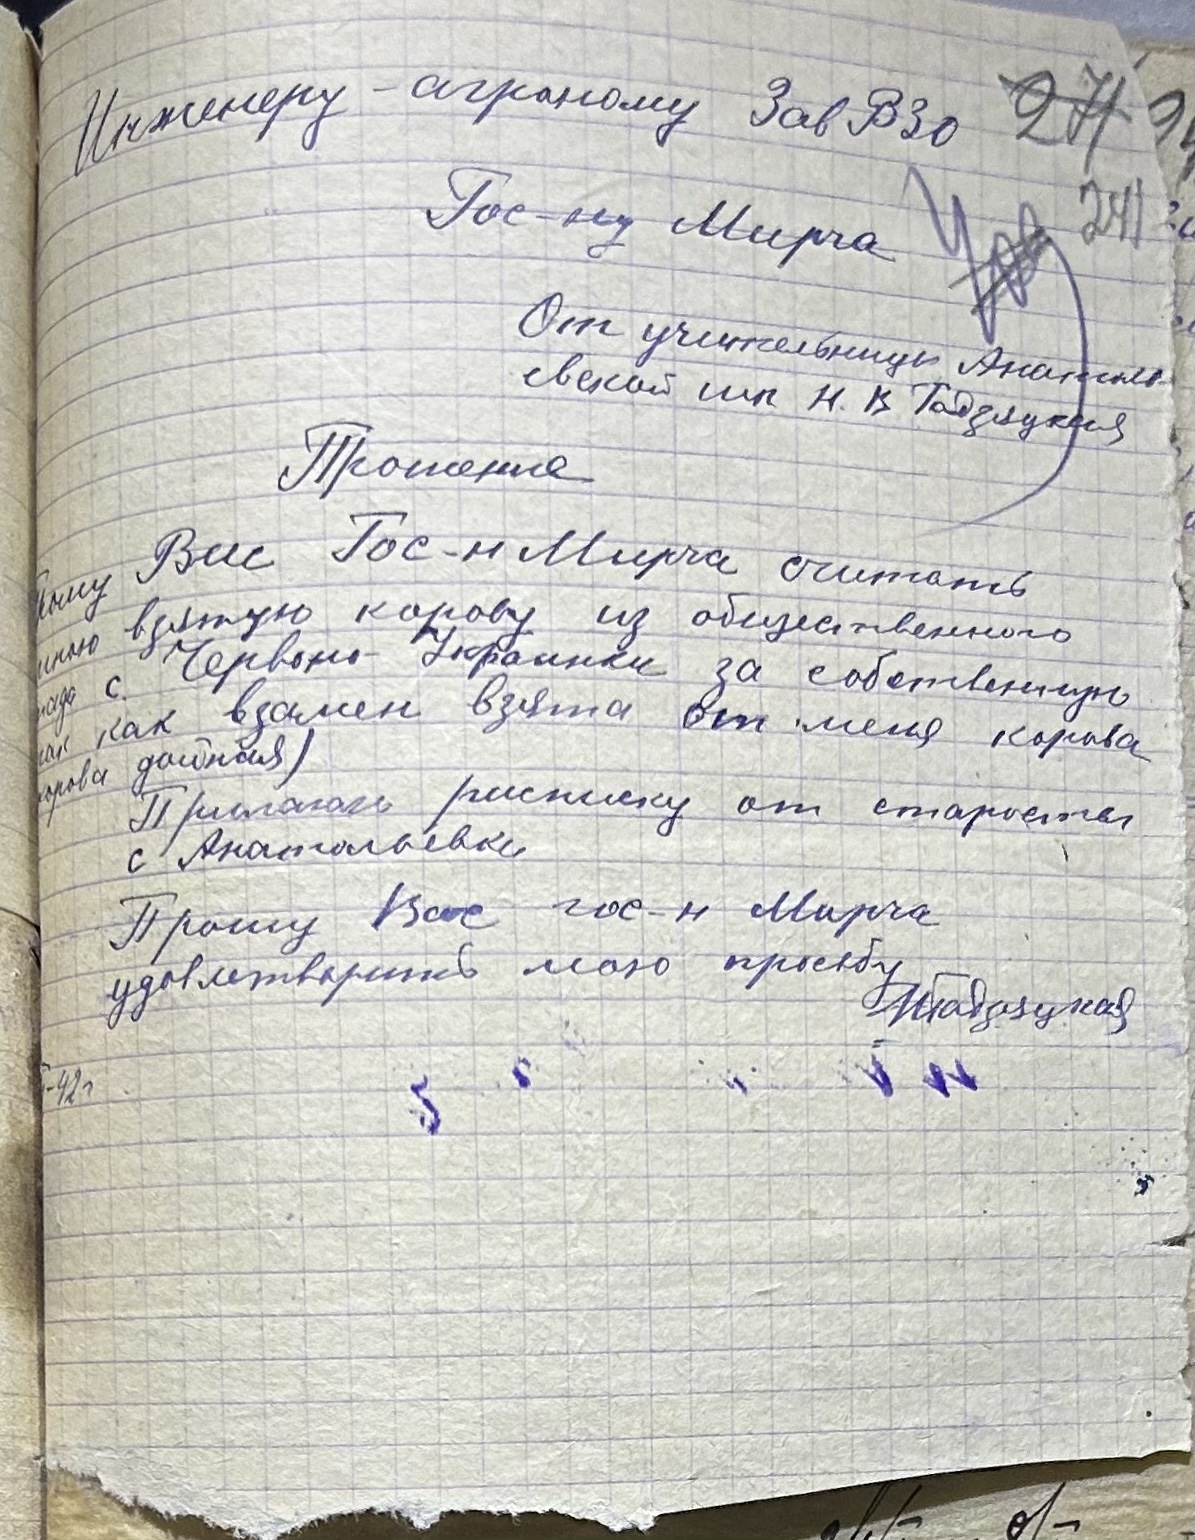 Инженеру-агроному Зав ВЗО 27
241
Гос-ну Мирча
От учительницы Анатоль-
евской шк Н. В Гадзяцкая
Прошение
Вас Гос-н Мирча считать
взятую корову из общественного
с. Червоно-Украинки за собственную
как взамен взята от меня корова
корова дойная)
Прилагаю расписку от старосты
с Анатольевки
Прошу Вас гос-н Мирча
удовлетворить мою просьбу
НГадзяцкая
-42г